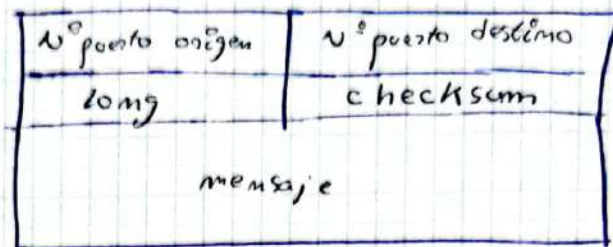 Nº puerto origen Nº puerto destino
long checksum
mensaje